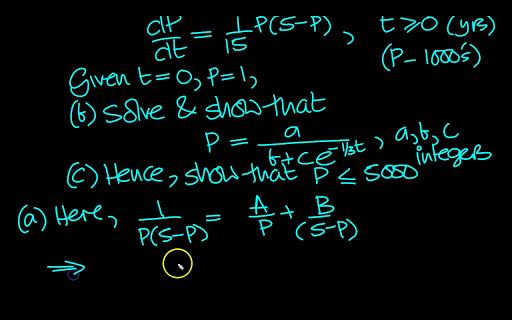 dP/dt = 1/15 P(5-P), t ≥ 0 (yrs)
(P - 1000's)
Given t = 0, P = 1,
(b) solve & show that
P = a/(b + ce^(-1/3t)), a, b, c integers
(c) Hence, show that P ≤ 5000
(a) Here, 1/(P(5-P)) = A/P + B/(5-P)
⇒